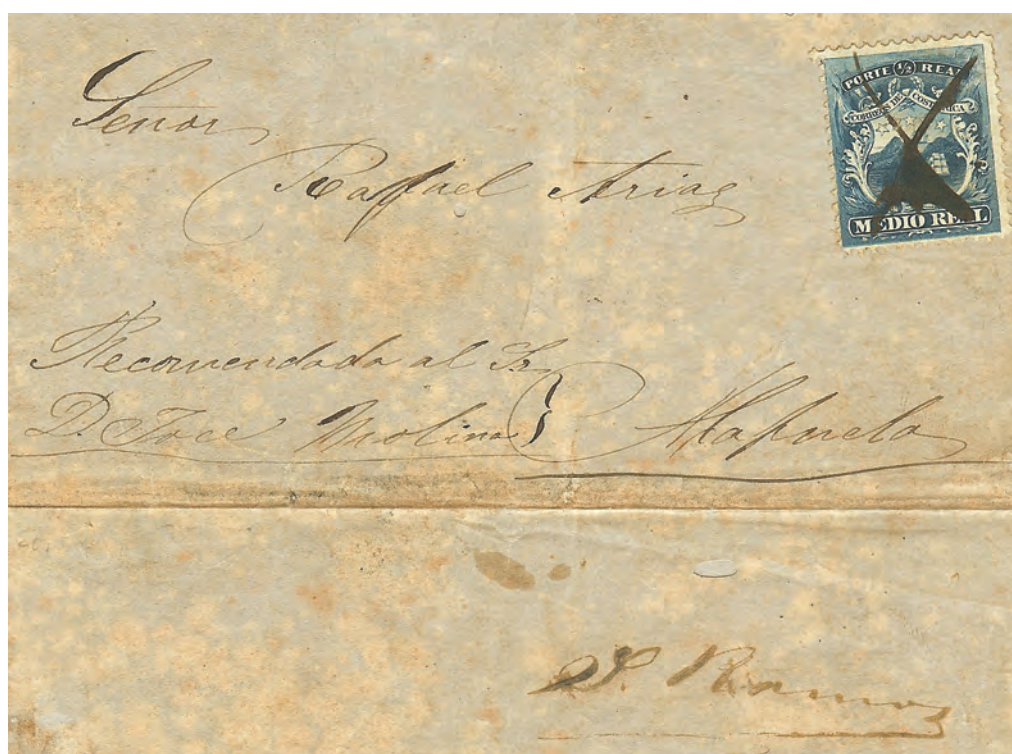 PORTE ½ REAL
CORREOS DE COSTA RICA
MEDIO REAL
Señor
Rafael Arias
Recomendada al Sr.
D. Jose Molina } Alajuela
S. Ramon